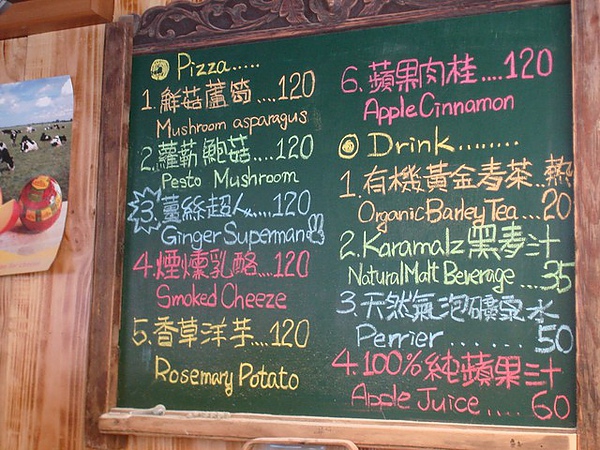 Pizza.....
1.鮮菇蘆筍....120
Mushroom asparagus
2.蘿勒鮑菇....120
Pesto Mushroom
3.薑絲超人.....120
Ginger Superman
4.煙燻乳酪....120
Smoked Cheeze
5.香草洋芋....120
Rosemary Potato
6.蘋果肉桂....120
Apple Cinnamon
Drink........
1.有機黃金麥茶...熱
Organic Barley Tea...20
2.Karamalz黑麥汁
Natural Malt Beverage ...35
3.天然氣泡礦泉水
Perrier.......50
4.100%純蘋果汁
Apple Juice....60